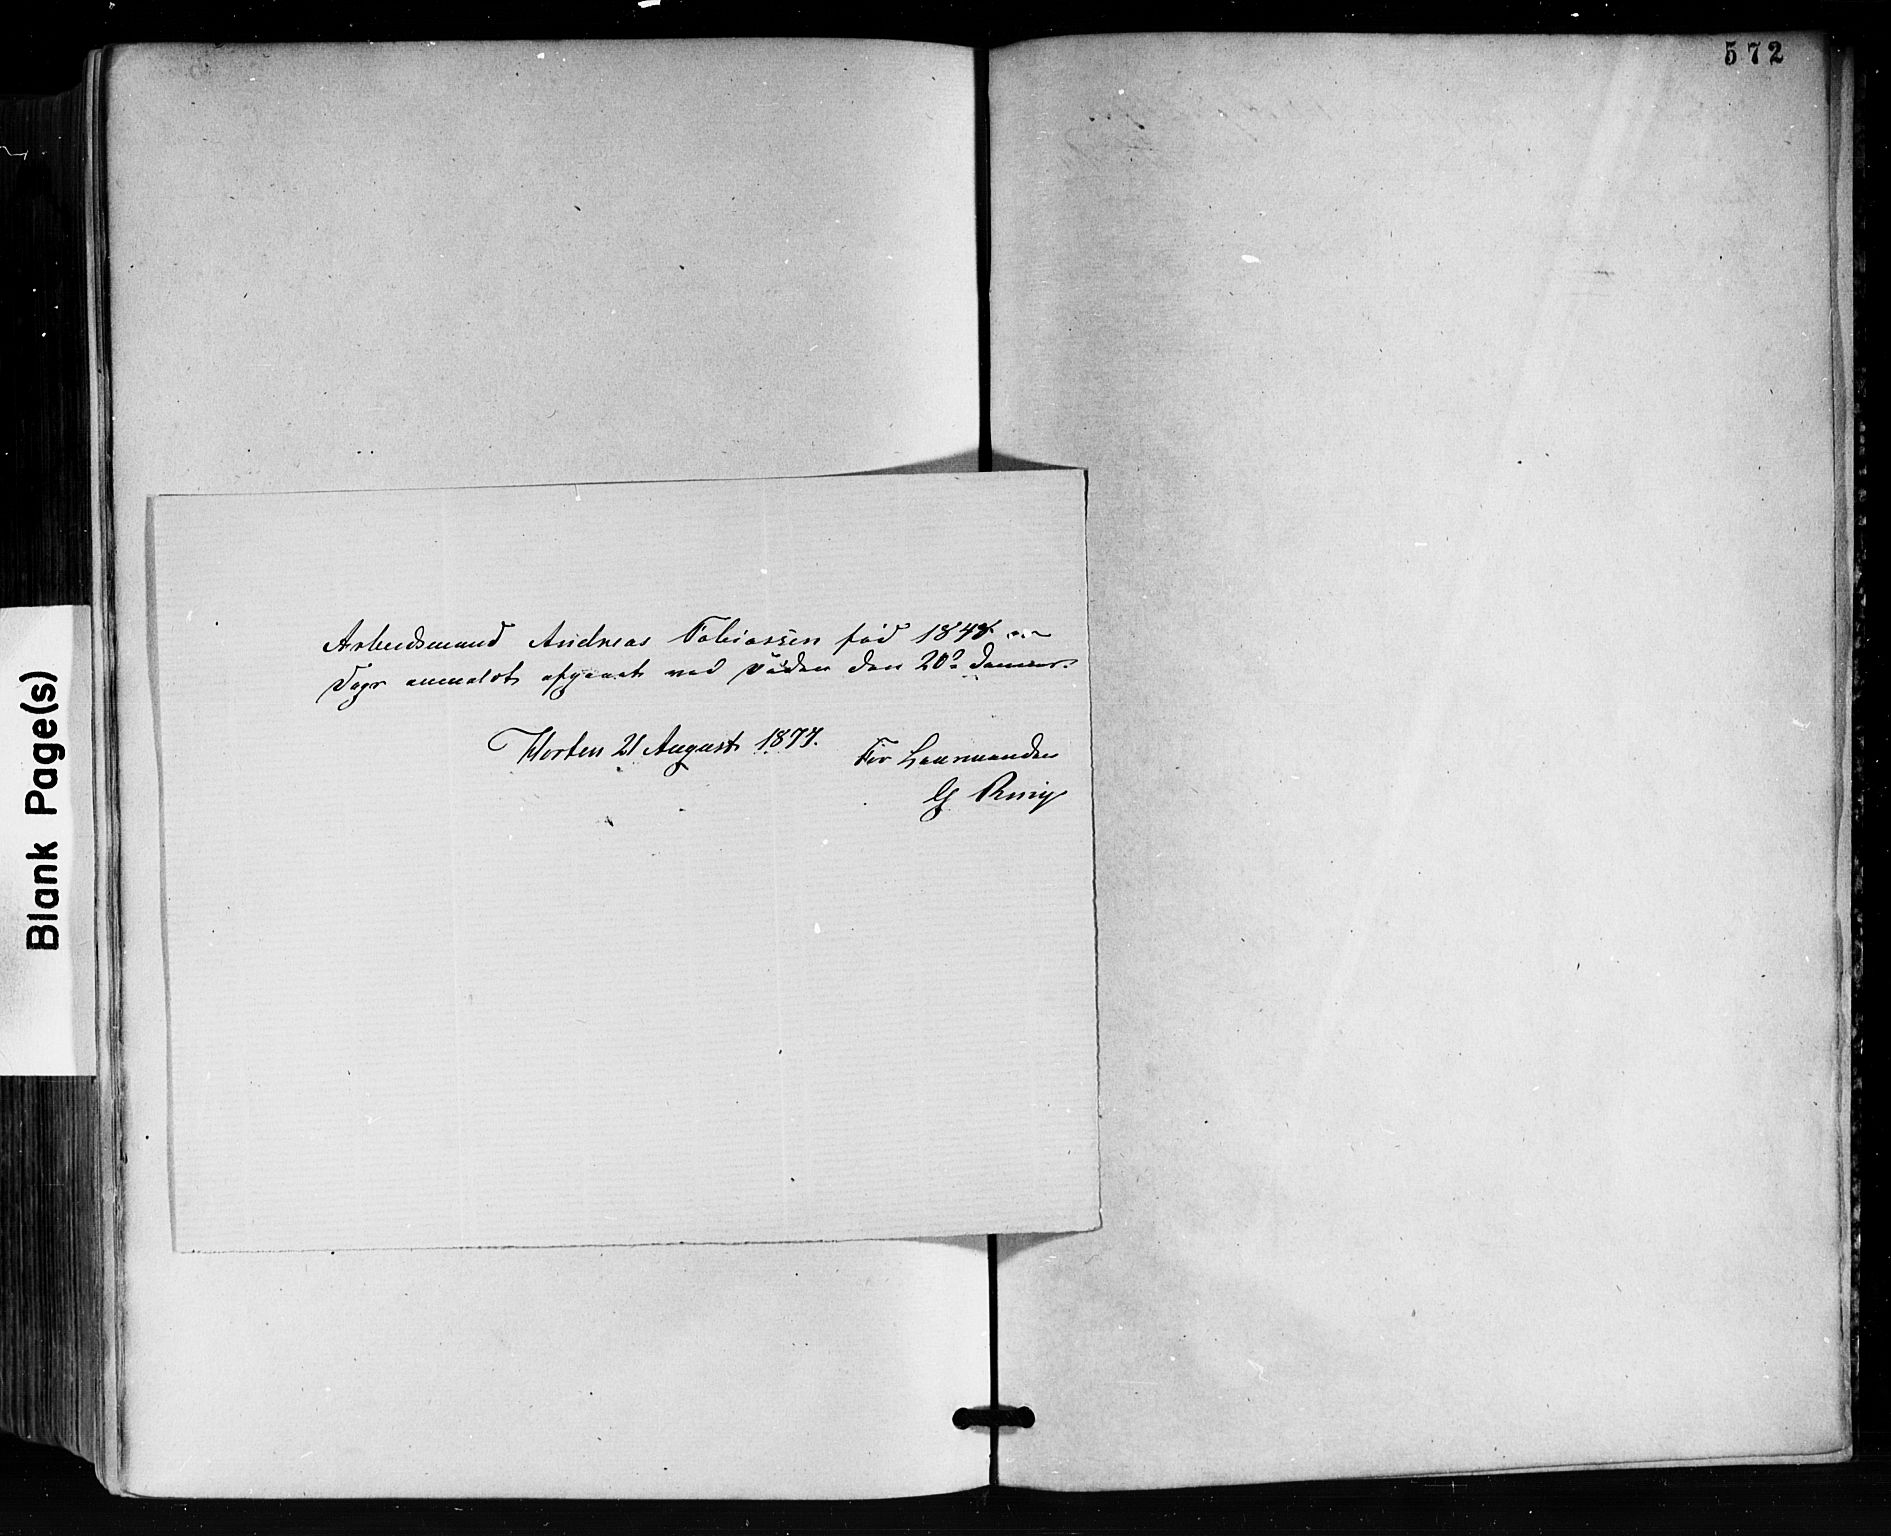 572
Blank Page(s)
Arbeidsmand Andreas Tobiassen fød 1848 er
Dags anmeldt afgaaet ved Døden den 20de dennes.
Horten 21 August 1877.
For Lensmanden
G Ring